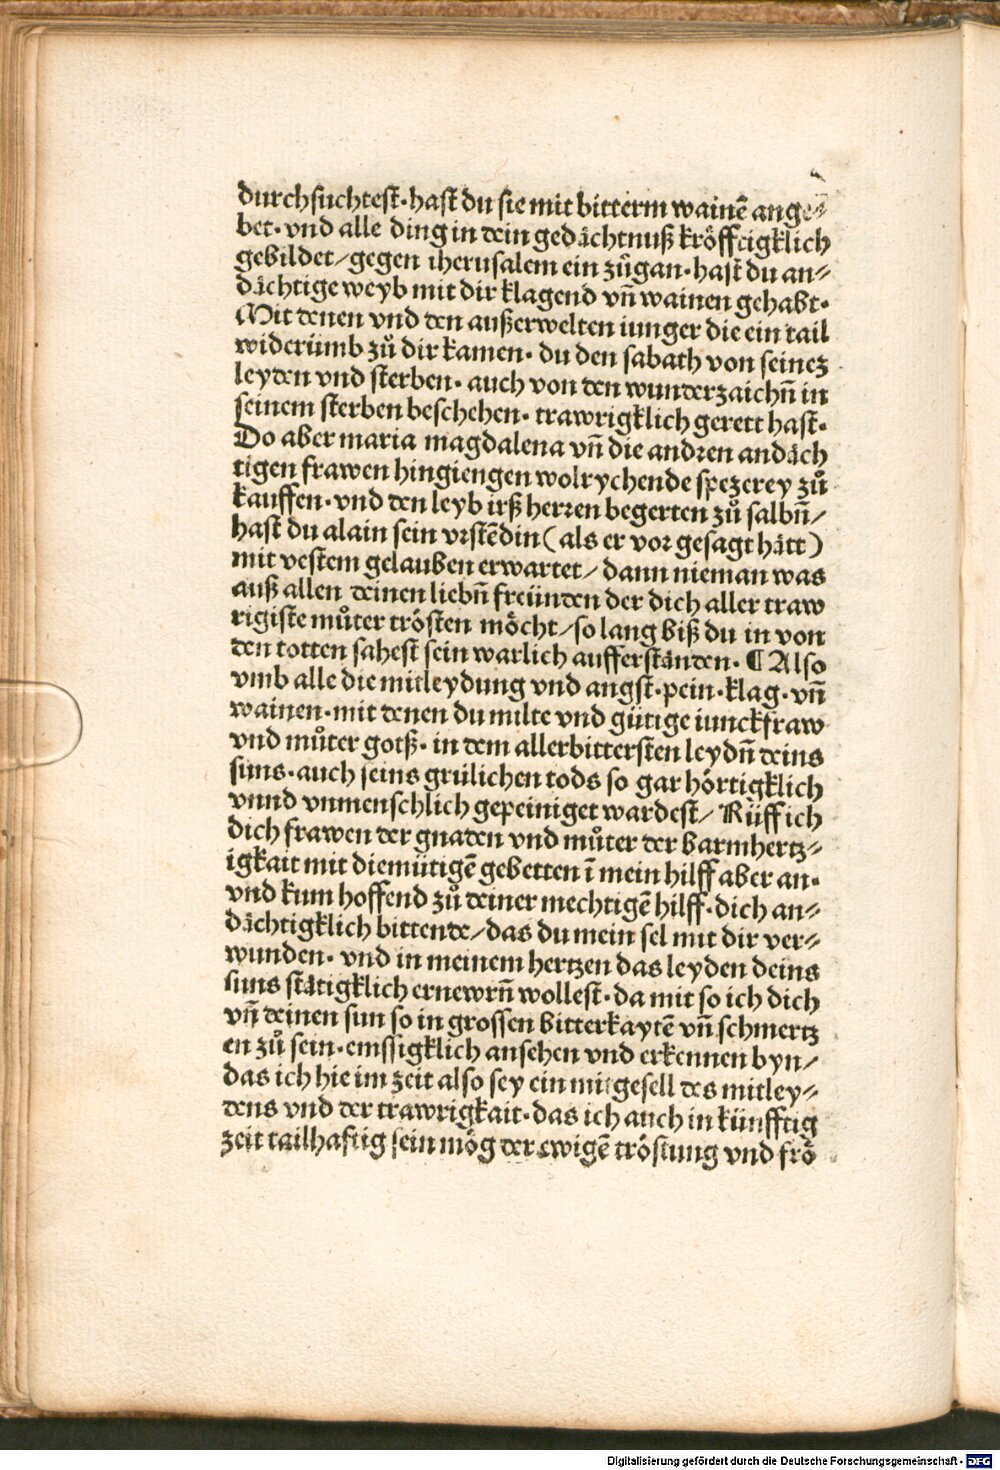 durchsuchtest·hast du sie mit bitterm wainē ange⸗
bet·vnd alle ding in dein gedächtnuß kröfftigklich
gebildet/gegen iherusalem ein zůgan·hast du an⸗
dächtige weyb mit dir klagend vn̄ wainen gehabt·
Mit denen vnd den außerwelten iunger die ein tail
widerümb zů dir kamen· du den sabath von seinez
leyden vnd sterben· auch von den wunderzaichn̄ in
seinem sterben beschehen· trawrigklich gerett hast·
Do aber maria magdalena vn̄ die andꝛen andäch
tigen frawen hingiengen wolrychende spezerey zů
kauffen·vnd den leyb irß herꝛen begerten zů salbn̄/
hast du alain sein vꝛstēdin(als er voꝛ gesagt hätt)
mit vestem gelauben erwartet/dann nieman was
auß allen deinen liebn̄ freünden der dich aller traw
rigiste můter trösten möcht/so lang biß du in von
den totten sahest sein warlich aufferstanden· ¶Also
vmb alle die mitleydung vnd angst·pein·klag·vn̄
wainen·mit denen du milte vnd gütige iunckfraw
vnd můter gotß· in dem allerbittersten leydn̄ deins
suns·auch seins grülichen tods so gar hörtigklich
vnnd vnmenschlich gepeiniget wardest/ Rüff ich
dich frawen der gnaden vnd můter der barmhertz⸗
igkait mit diemütigē gebetten ī mein hilff aber an·
vnd kum hoffend zů deiner mechtigē hilff·dich an⸗
dächtigklich bittende/das du mein sel mit dir ver⸗
wunden· vnd in meinem hertzen das leyden deins
suns stätigklich ernewrn̄ wollest·da mit so ich dich
vn̄ deinen sun so in grossen bitterkaytē vn̄ schmertz
en zů sein·emssigklich ansehen vnd erkennen byn/
das ich hie im zeit also sey ein mitgesell des mitley⸗
dens vnd der trawrigkait·das ich auch in künfftig
zeit tailhafftig sein mög der ewigē tröstung vnd frö
Digitalisierung gefördert durch die Deutsche Forschungsgemeinschaft - DFG